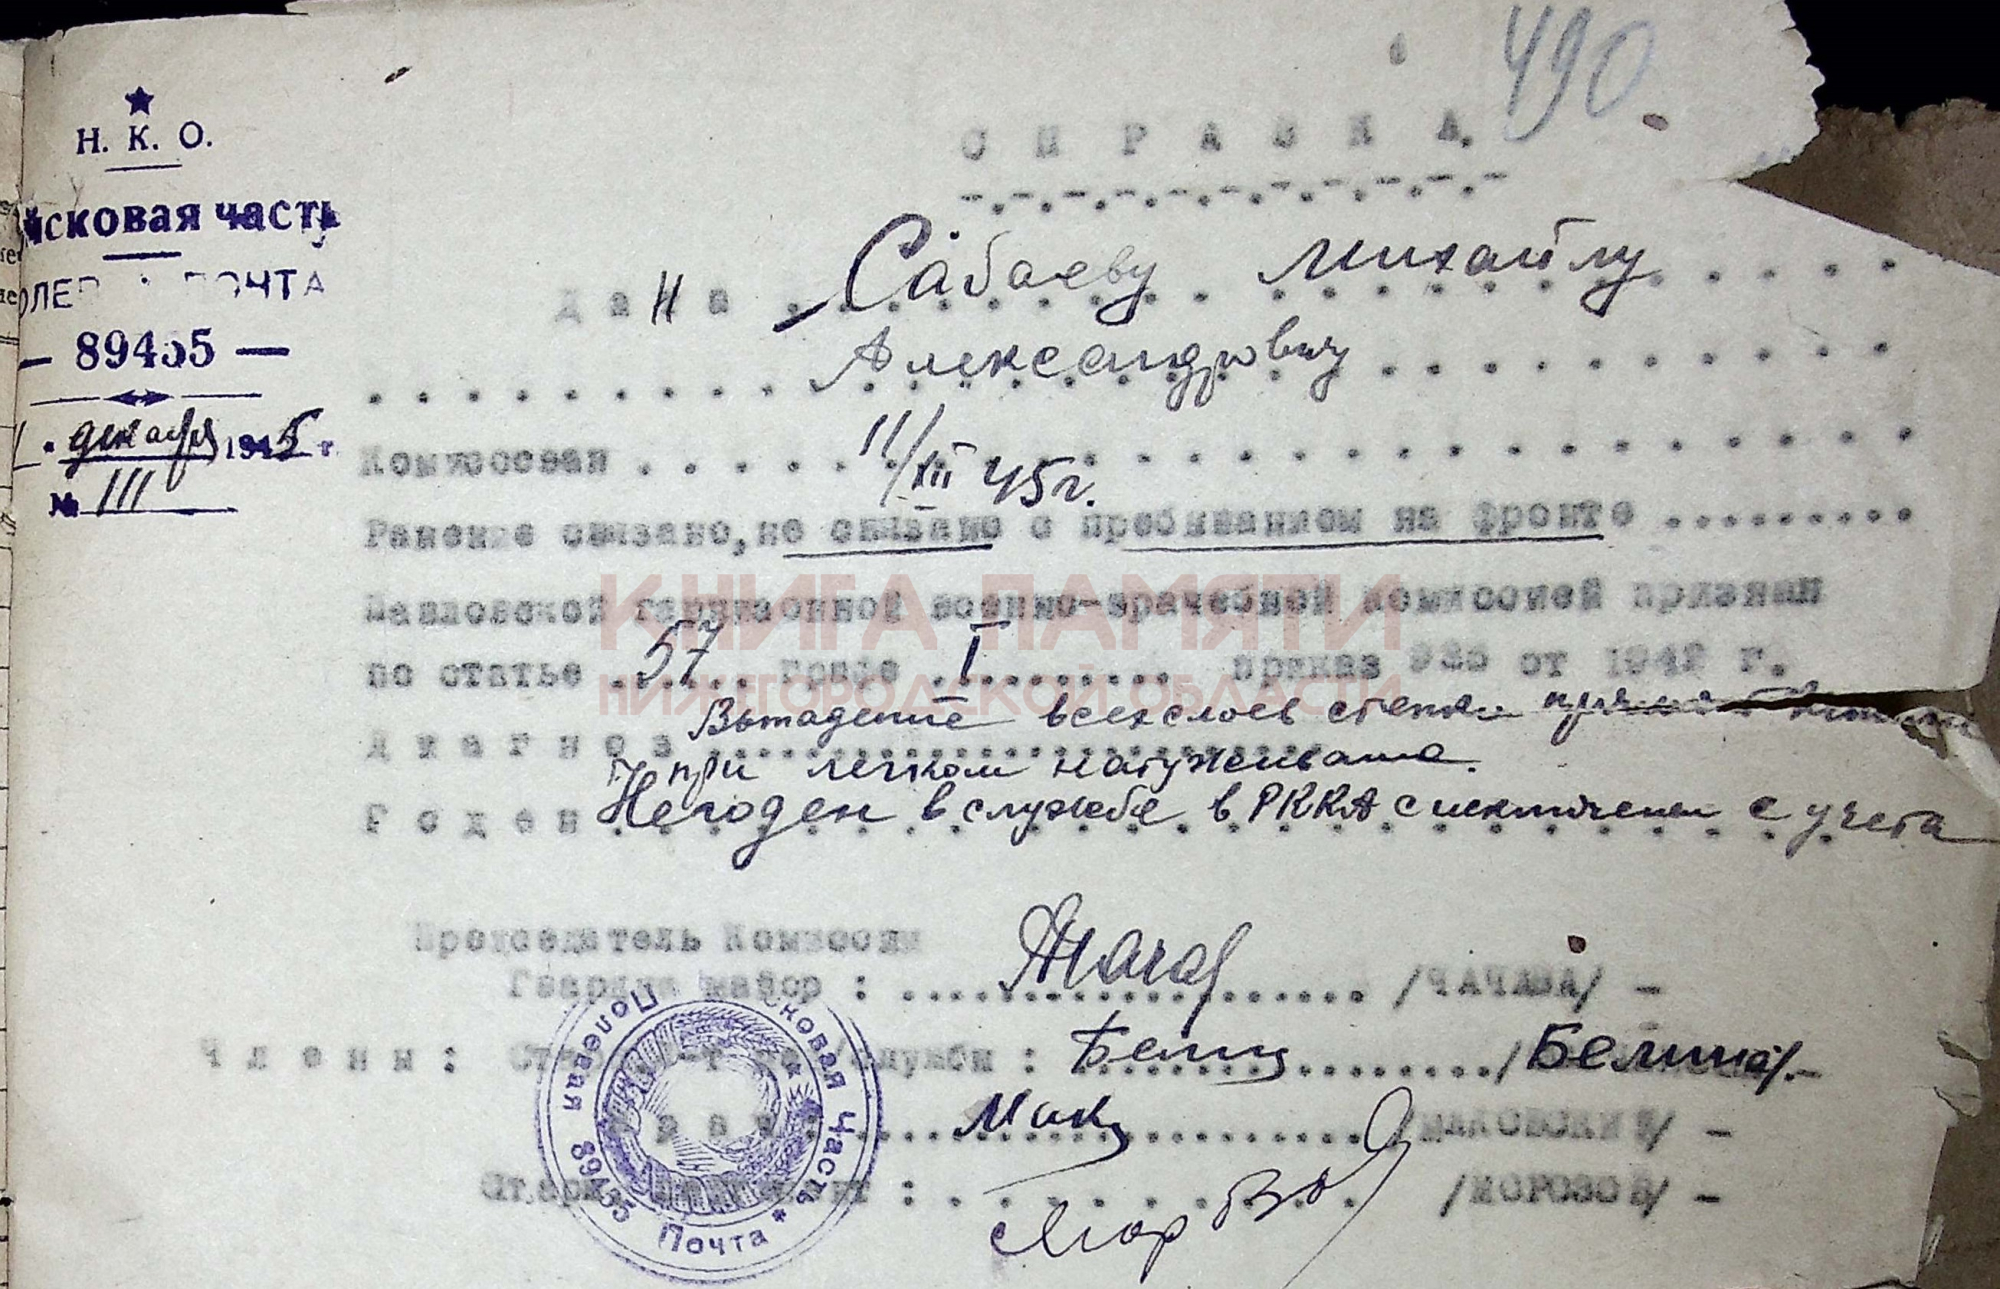 490
Н. К. О.
йсковая часть
ОЛЕВ ПОЧТА
— 89455 —
декабря 1945 г.
№ III
СПРАВКА.
Дана Сабаеву Михаилу
Александровичу
Комиссован 11/XII 45г.
Ранение связано, не связано с пребыванием на фронте
Павловской гарнизонной военно-врачебной комиссией признан
по статье 57 графе I приказ 336 от 1942 г.
Диагноз Выпадение всех слоев стенки прямой кишки
при легком натуживание.
Годен Негоден в службе в РККА с исключением с учета
Председатель Комиссии
Гвардии майор : /ЧАЧАВА/ -
Члены: службы : /Белина/. -
Врач : /МАКОВСКИЙ/ -
Старш. лейтенант : /МОРОЗОВ/ -
Полевая Почта 89455
Часть
КНИГА ПАМЯТИ
НИЖЕГОРОДСКОЙ ОБЛАСТИ